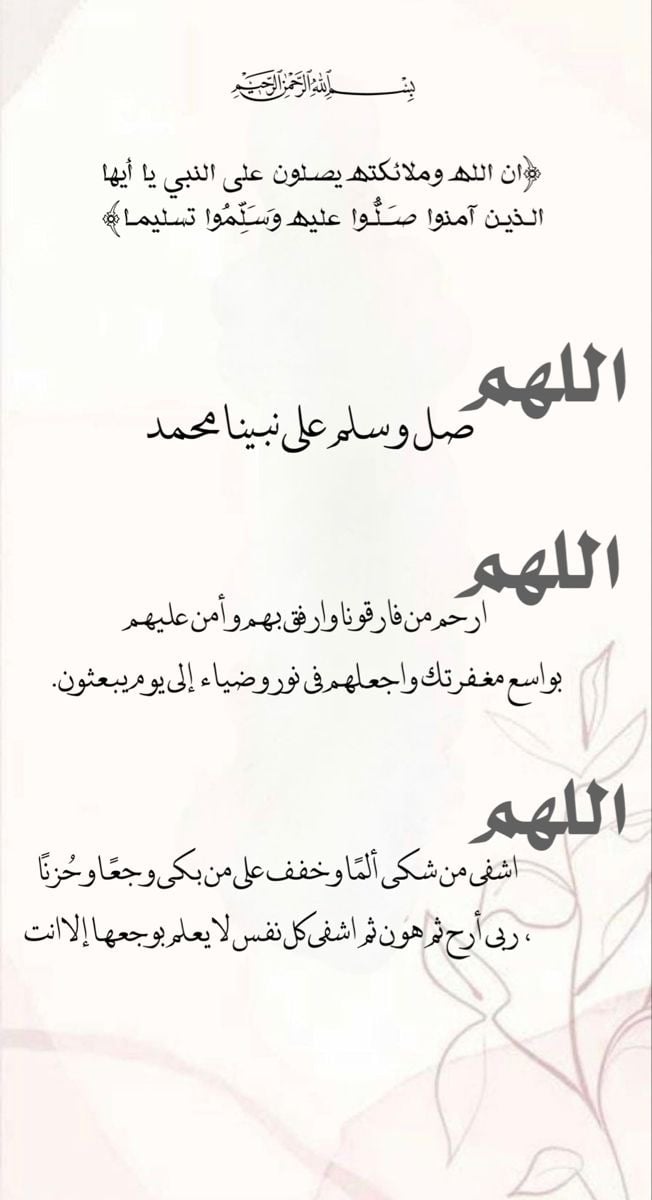 بسم الله الرحمن الرحيم
﴿ان الله وملائكته يصلون على النبي يا أيها
الذين آمنوا صَلُّوا عليه وَسَلِّمُوا تسليما﴾
اللهم
صل وسلم على نبينا محمد
اللهم
ارحم من فارقونا وارفق بهم وأمن عليهم
بواسع مغفرتك واجعلهم في نور وضياء إلى يوم يبعثون.
اللهم
اشفي من شكى ألمًا وخفف على من بكى وجعًا وحُزنًا
، ربي أرح ثم هون ثم اشفي كل نفس لا يعلم بوجعها إلا انت